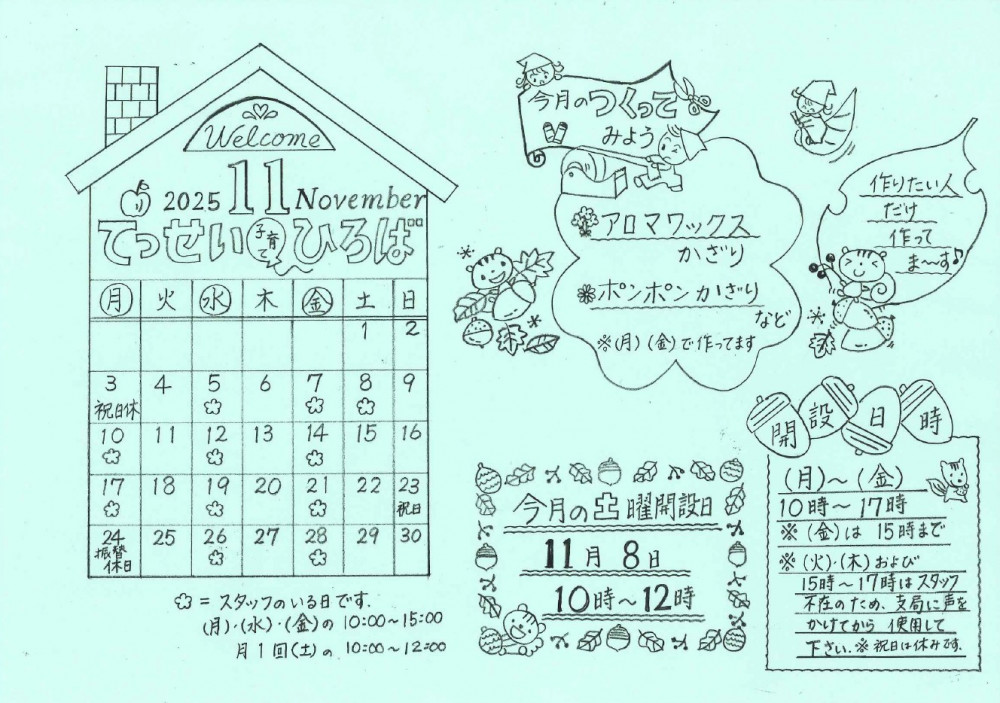 Welcome
2025 11 November
てっせい子育てひろば
月 火 水 木 金 土 日
1 2
3 4 5 6 7 8 9
祝日休
10 11 12 13 14 15 16
17 18 19 20 21 22 23
祝日
24 25 26 27 28 29 30
振替
休日
= スタッフのいる日です.
(月)・(水)・(金)の 10:00〜15:00
月1回(土)の 10:00〜12:00
今月のつくって
みよう
アロマワックス
かざり
ポンポンかざり
など
※(月)(金)で作ってます
作りたい人
だけ
作って
ま〜す♪
今月の土曜開設日
11月 8日
10時〜12時
開設日時
(月)〜(金)
10時〜17時
※(金)は 15時まで
※(火)・(木)および
15時〜17時はスタッフ
不在のため、支局に声を
かけてから 使用して
下さい.※祝日は休みです.